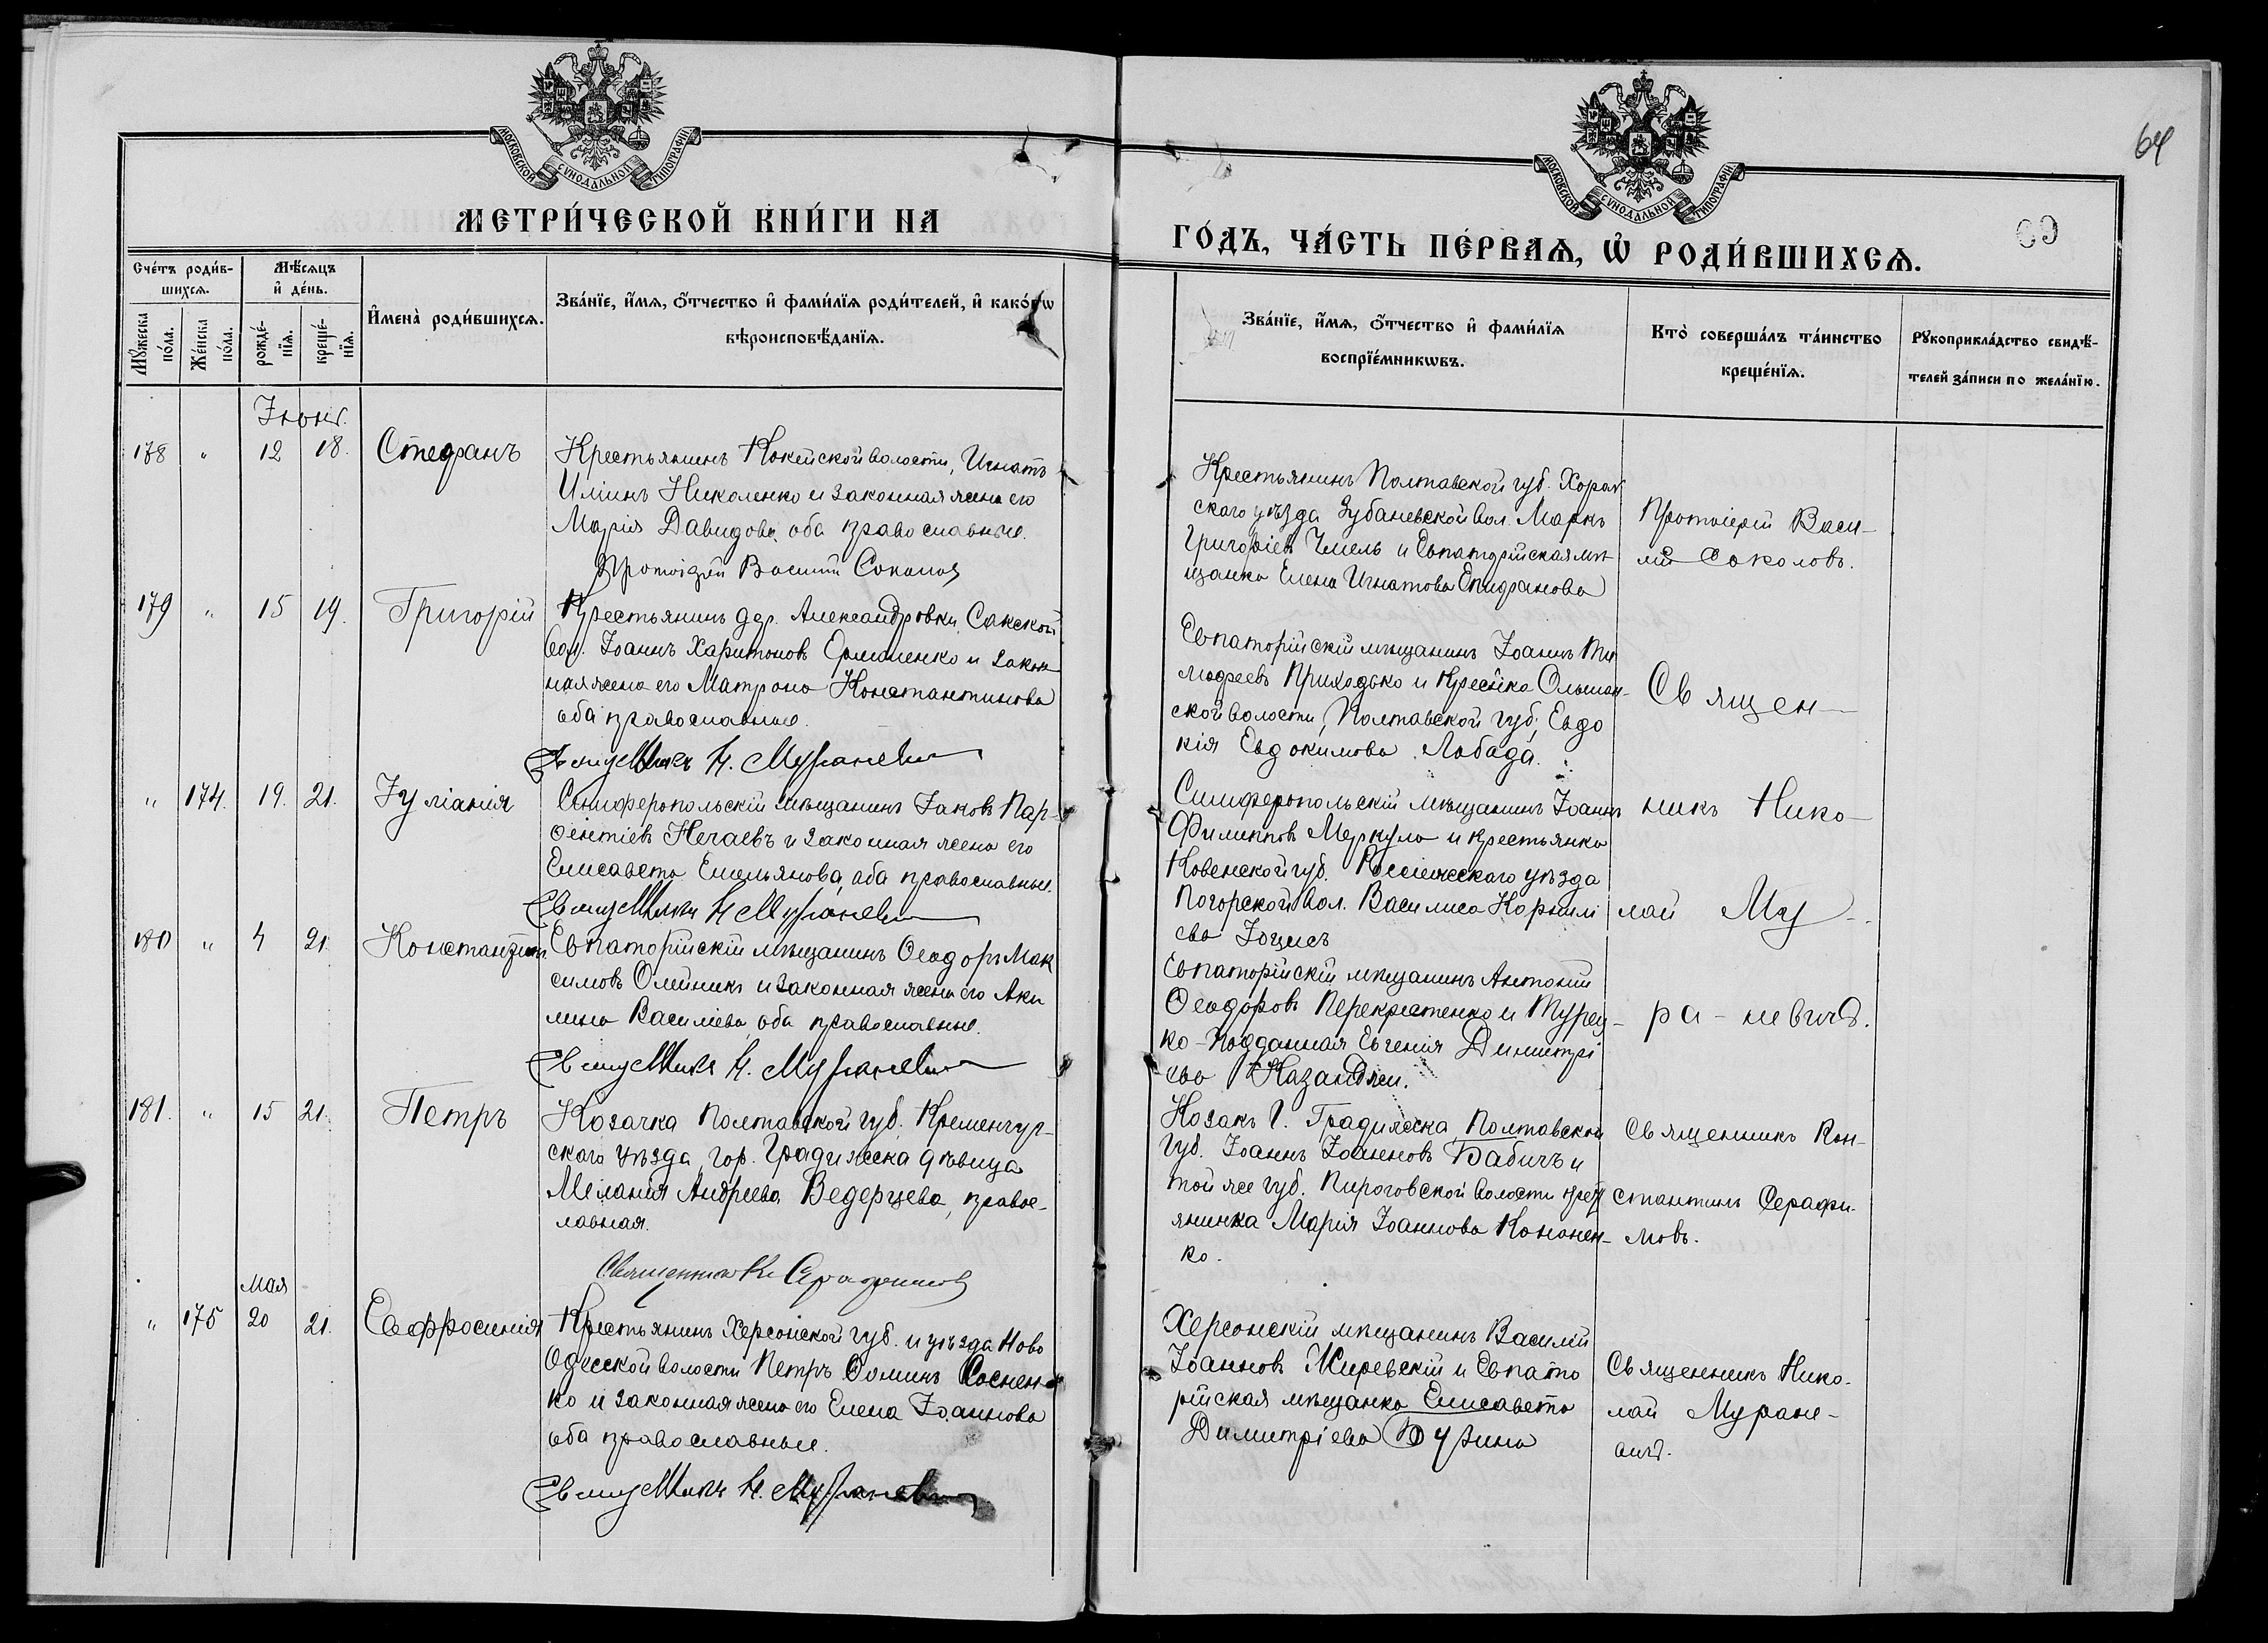 64
МОСКОВСКОЙ СУНОДАЛЬНОЙ ТИПОГРАФІИ
МЕТРИ́ЧЕСКОЙ КНИ́ГИ НА
Сче́тъ роди́в-
шихсѧ.
Мѣ́сѧцъ
и҆ де́нь.
Мꙋ́жеска
по́ла.
Же́нска
по́ла.
рожде́-
нїѧ.
креще́-
нїѧ.
И҆мена̀ роди́вшихсѧ.
Зва́нїе, и҆́мѧ, ѻ҆́тчество и҆ фами́лїѧ роди́телей, и҆ како́гѡ
вѣроисповѣ́данїѧ.
Іюнь.
178 " 12 18. Стефанъ
Крестьянинъ Кокейской волости, Игнатъ
Иліинъ Николенко и законная жена его
Марія Давидова, оба православные.
Протоіерей Василій Соколов
179 " 15 19. Григорій
Крестьянинъ дер. Александровки, Сакской
вол. Іоаннъ Харитоновъ Ермоленко и закон-
ная жена его Матрона Константинова
оба православные.
Священникъ Н. Мураневич
" 174. 19. 21. Іуліанія
Симферопольскій мѣщанинъ Іаковъ Пар-
ѳентіевъ Нечаевъ и законная жена его
Елисавета Емельянова, оба православные.
Священникъ Н. Мураневич
180 " 4 21. Константинъ
Евпаторійскій мѣщанинъ Ѳеодоръ Мак
симовъ Олейникъ и законная жена его Аки
лина Василіева, оба православные.
Священникъ Н. Мураневич
181. " 15 21. Петръ
Козачка Полтавской губ. Кременчуг-
скаго уѣзда, гор. Градижска дѣвица
Меланія Андреева Ведерцева, правос-
лавная.
Священникъ К Серафимов
Мая
" 175 20 21. Евфросинія
Крестьянинъ Херсонской губ. и уѣзда Ново
Одесской волости Петръ Ѳоминъ Коснен-
ко и законная жена его Елена Іоаннова
оба православные.
Священникъ Н. Мураневич
МОСКОВСКОЙ СУНОДАЛЬНОЙ ТИПОГРАФІИ
ГО́ДЪ, ЧА́СТЬ ПЕ́РВАѦ, Ѽ РОДИ́ВШИХСѦ.
Зва́нїе, и҆́мѧ, ѻ҆́тчество и҆ фами́лїѧ
воспрїе́мникѡвъ.
Кто̀ соверша́лъ та́инство
креще́нїѧ.
Рꙋкоприкла́дство свидѣ́-
телей за́писи по жела́нїю.
Крестьянинъ Полтавской губ. Хороль
скаго уѣзда Зубаневской вол. Маркъ
Григоріевъ Чмель и Евпаторійская мѣ-
щанка Елена Игнатова Епифанова
Протоіерей Васи-
лій Соколовъ.
Евпаторійскій мѣщанинъ Іоаннъ Ти
моѳеевъ Приходько и Крест-ка Ольшан-
ской волости, Полтавской губ. Евдо
кія Евдокимова Лобада.
Священ-
Симферопольскій мѣщанинъ Іоаннъ
Филипповъ Меркуло и крестьянка
Ковенской губ. Россіенскаго уѣзда
Погорской вол. Василиса Корнилі
ева Іоцисъ
никъ Нико-
лай Му-
Евпаторійскій мѣщанинъ Антоній
Ѳеодоровъ Перекрестенко и Турец-
ко-подданная Евгенія Димитрі
ева Казанджи.
ра-невичъ.
Козакъ г. Градижска, Полтавской
губ. Іоаннъ Іоанновъ Бабичъ и
той же губ. Пироговской волости крест
янинка Марія Іоаннова Кононен-
ко.
Священникъ Кон-
стантинъ Серафи-
мовъ.
Херсонскій мѣщанинъ Василій
Іоанновъ Жиревскій и Евпато
рійская мѣщанка Елисавета
Димитріева Бузина
Священникъ Нико-
лай Муране-
вичъ.